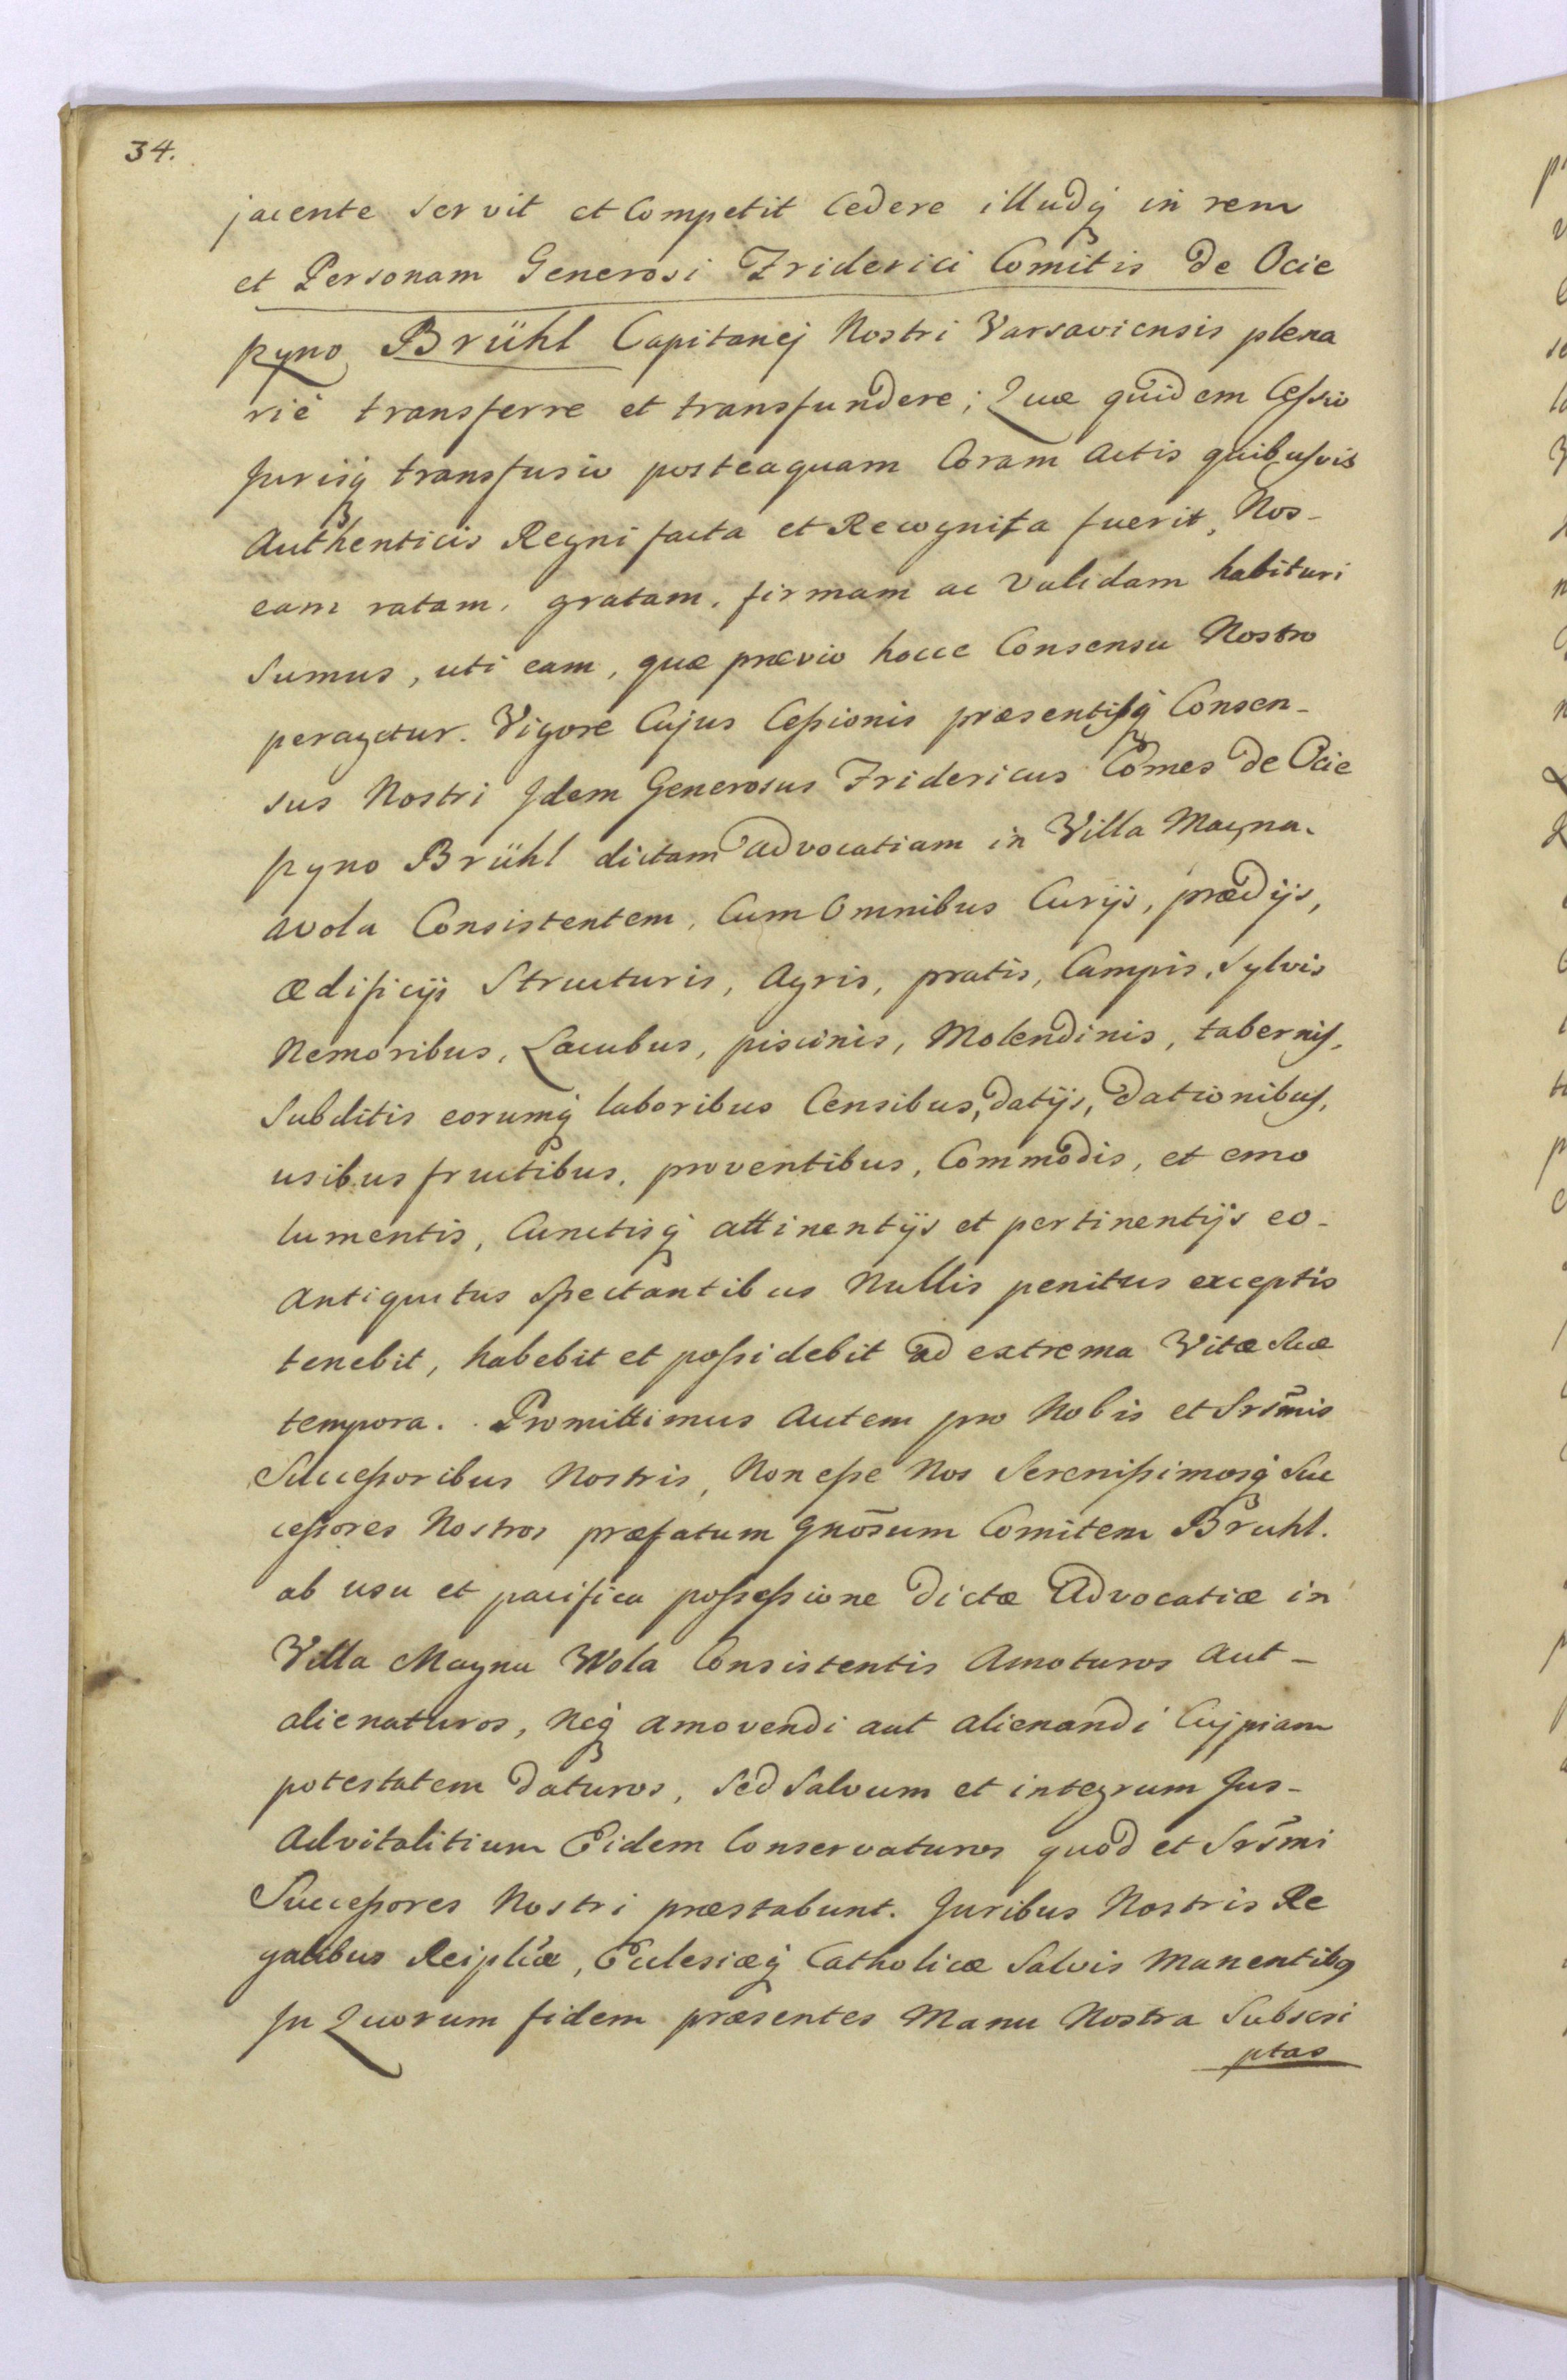 34.
jacente servit et Competit Cedere illudq́ in rem
et Personam Generosi Friderici Comitis De Ocie
pyno Brühl Capitanej Nostri Varsaviensis plena
riè transferre et transfundere; Quæ quidem Cessio
Jurisq́ transfusio posteaquam Coram Actis quibusvis
Authenticis Regni facta et Recognita fuerit, Nos-
eam ratam, gratam, firmam ac Validam habituri
sumus, uti eam, quæ prævio hocce Consensu Nostro
peragetur. Vigore Cujus Cessionis præsentisq́ Consen-
sus Nostri Jdem Generosus Fridericus Comes De Ocie
pyno Brühl dictam advocatiam in Villa Magna
Wola Consistentem, Cum Omnibus Curijs, prædijs,
ædificijs Structuris, Agris, pratis, Campis, Sylvis
Nemoribus, Lacubus, piscinis, Molendinis, tabernis,
Subditis eorumq́ laboribus Censibus, datijs, Dationibus,
usibus fructibus, proventibus, Commodis, et emo
lumentis, Cunctisq́ attinentijs et pertinentijs eo-
Antiquitus Spectantibus Nullis penitus exceptis
tenebit, habebit et possidebit ad extrema Vitæ Suæ
tempora. Promittimus Autem pro Nobis et Srs̄mis
Successoribus Nostris, Non esse Nos Serenissimosq́ Suc
cessores Nostros præfatum Gnōsum Comitem Bruhl.
ab usu et pacifica possessione Dictæ Advocatiæ in
Villa Magna Wola Consistentis Amoturos Aut-
alienaturos, Neq́ amovendi aut alienandi Cujpiam
potestatem Daturos, Sed Salvum et integrum Jus-
Advitalitium Eidem Conservaturos quod et Srs̄mi
Successores Nostri præstabunt. Juribus Nostris Re
galibus Reipl̄cæ, Ecclesiæq́ Catholicæ Salvis Manentibꝰ
Jn Quorum fidem præsentes Manu Nostra Subscri
ptas